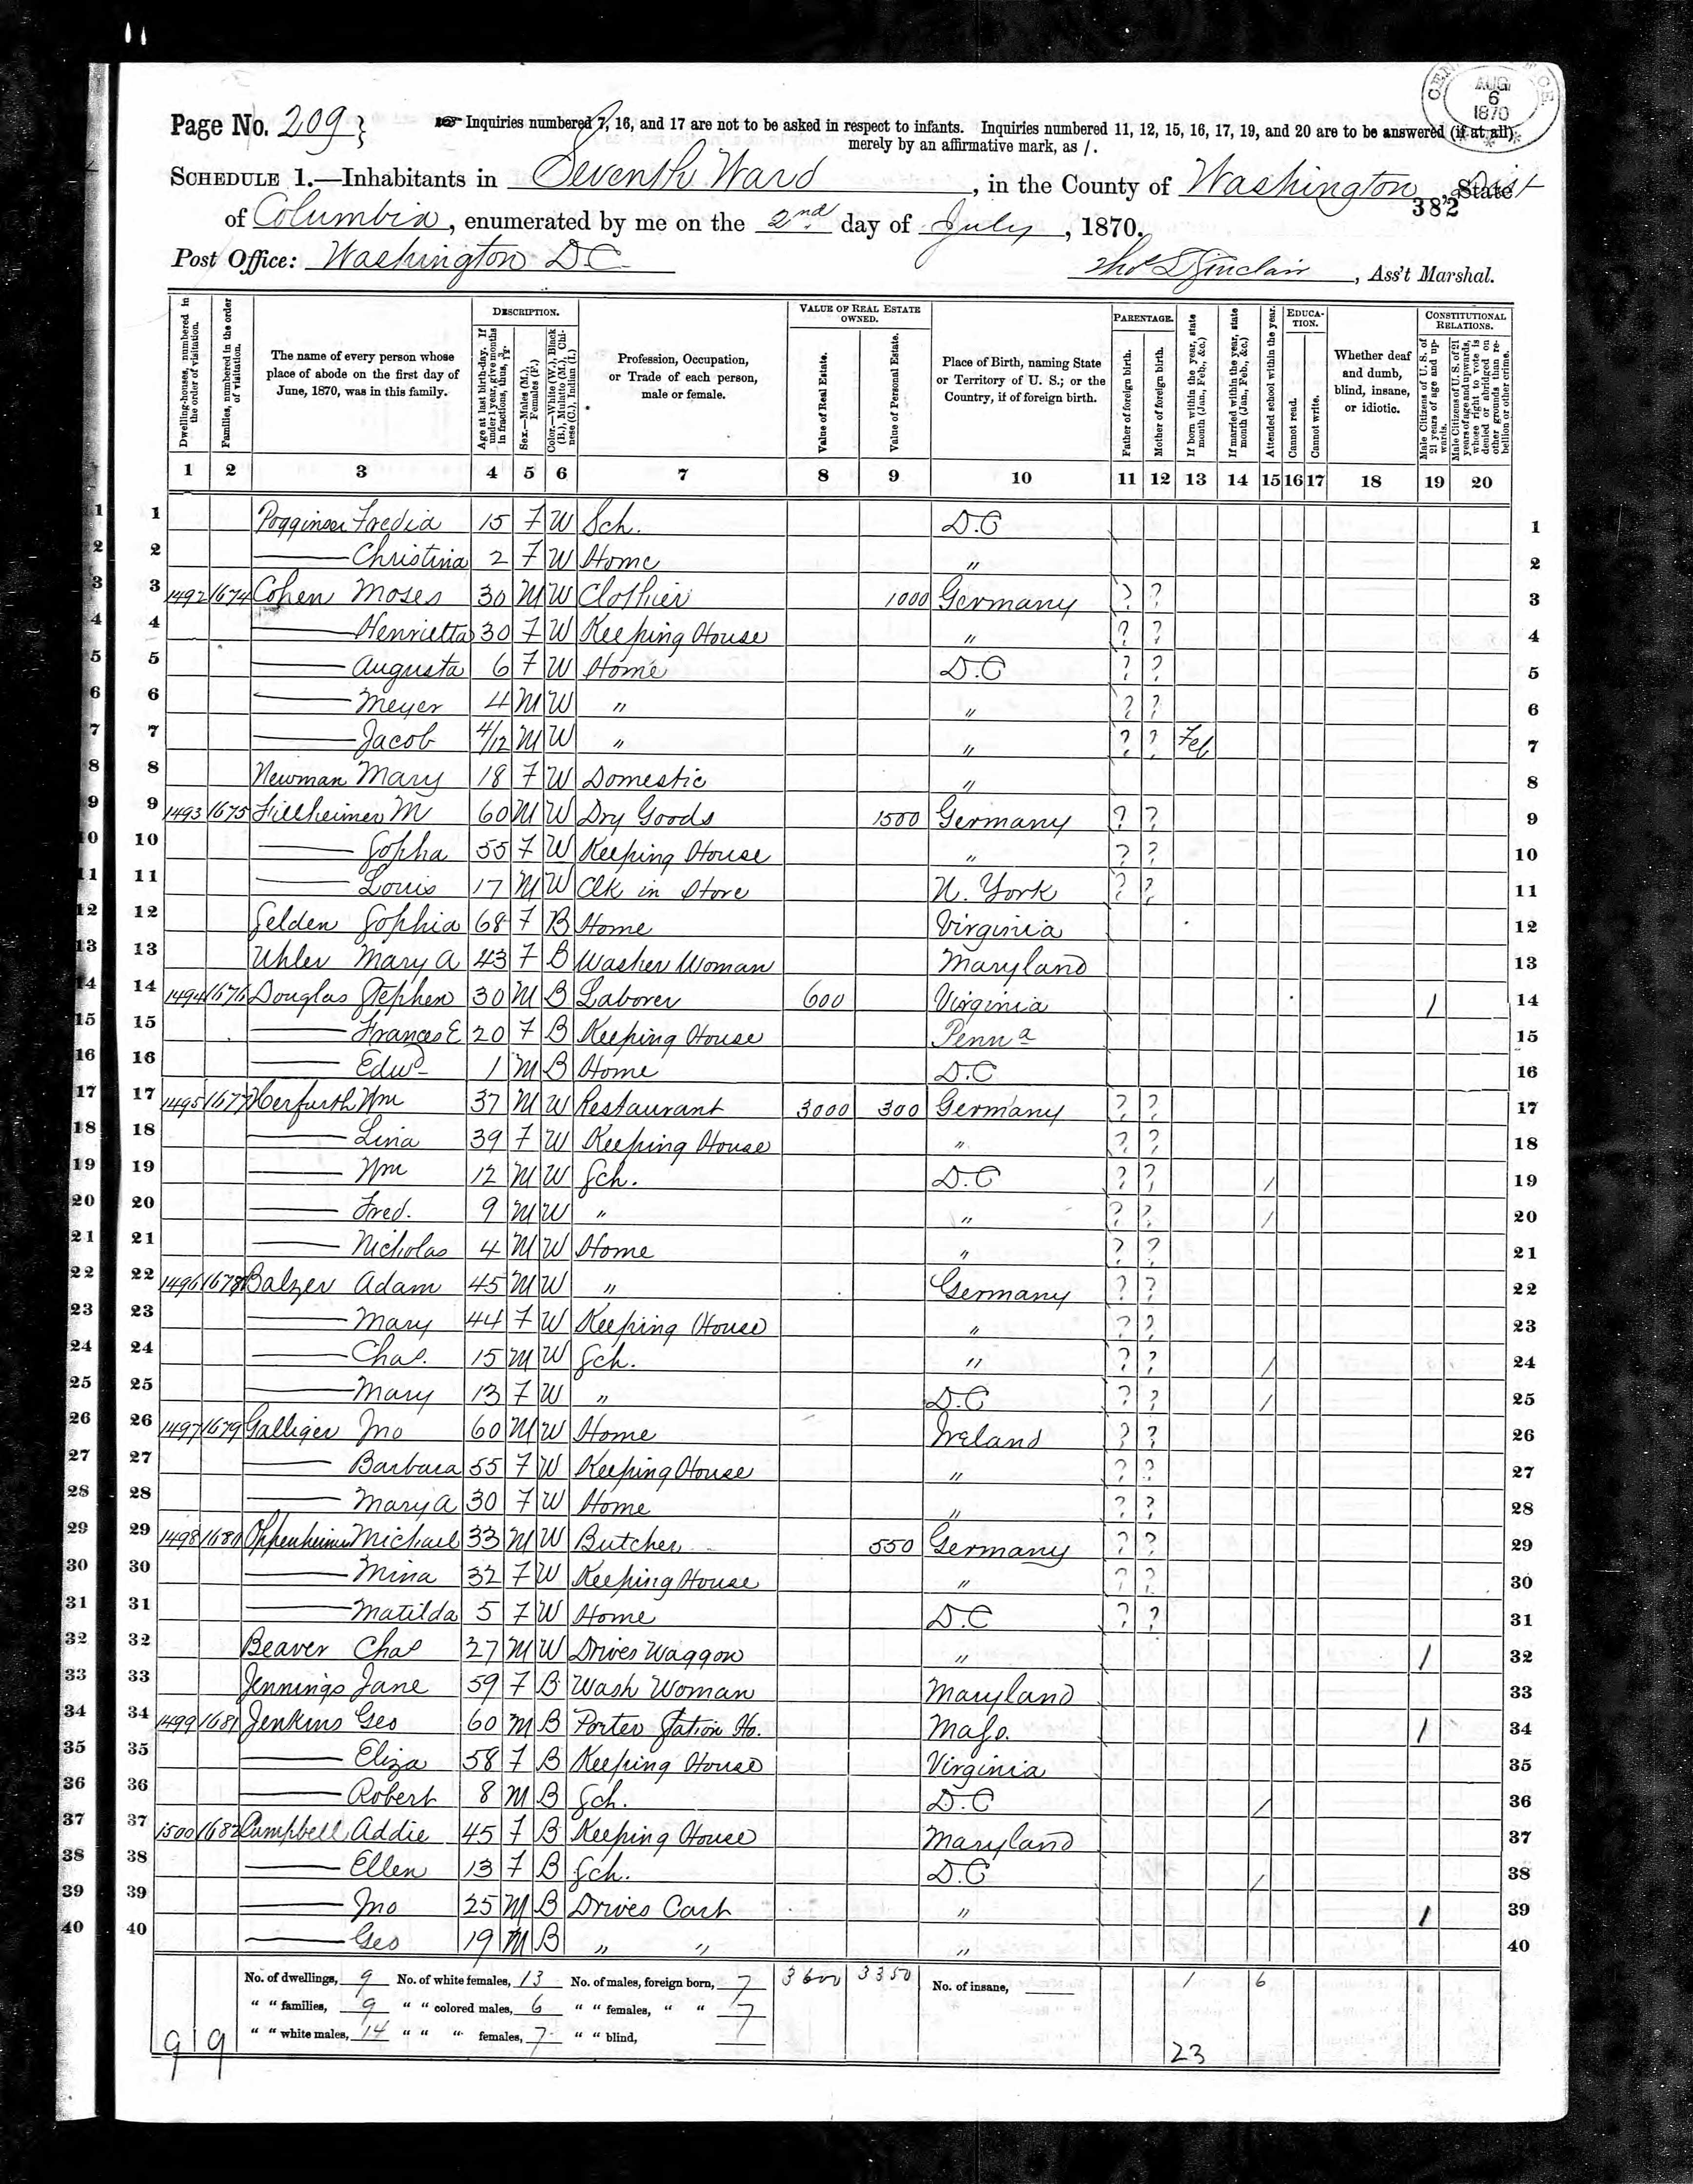 Page No. 209
Inquiries numbered 7, 16, and 17 are not to be asked in respect to infants. Inquiries numbered 11, 12, 15, 16, 17, 19, and 20 are to be answered (if at all)
merely by an affirmative mark, as /.
AUG 6 1870
SCHEDULE 1.—Inhabitants in Seventh Ward, in the County of Washington, State Dist
382
of Columbia, enumerated by me on the 2nd day of July, 1870.
Post Office: Washington D.C.
Thos Sinclair, Ass't Marshal.
Dwelling-houses, numbered in the order of visitation.
Families, numbered in the order of visitation.
The name of every person whose place of abode on the first day of June, 1870, was in this family.
DESCRIPTION.
Age at last birth-day. If under 1 year, give months in fractions, thus, 3/12.
Sex.—Males (M.), Females (F.)
Color.—White (W.), Black (B.), Mulatto (M.), Chinese (C.), Indian (I.)
Profession, Occupation, or Trade of each person, male or female.
VALUE OF REAL ESTATE OWNED.
Value of Real Estate.
Value of Personal Estate.
Place of Birth, naming State or Territory of U. S.; or the Country, if of foreign birth.
PARENTAGE.
Father of foreign birth.
Mother of foreign birth.
If born within the year, state month (Jan., Feb., &c.)
If married within the year, state month (Jan., Feb., &c.)
Attended school within the year.
EDUCATION.
Cannot read.
Cannot write.
Whether deaf and dumb, blind, insane, or idiotic.
CONSTITUTIONAL RELATIONS.
Male Citizens of U. S. of 21 years of age and upwards.
Male Citizens of U. S. of 21 years of age and upwards, whose right to vote is denied or abridged on other grounds than rebellion or other crime.
1 2 3 4 5 6 7 8 9 10 11 12 13 14 15 16 17 18 19 20
1 Fredia 15 F W Sch. D.C 1
2 — Christina 2 F W Home " 2
3 1492 1674 Cohen Moses 30 M W Clothier 1000 Germany ? ? 3
4 — Henrietta 30 F W Keeping House " ? ? 4
5 — Augusta 6 F W Home D.C ? ? 5
6 — Meyer 4 M W " " ? ? 6
7 — Jacob 4/12 M W " " ? ? Feb 7
8 Newman Mary 18 F W Domestic " 8
9 1493 1675 M 60 M W Dry Goods 1500 Germany ? ? 9
10 — Sopha 55 F W Keeping House " ? ? 10
11 — Louis 17 M W Clk in Store N. York ? ? 11
12 Selden Sophia 68 F B Home Virginia 12
13 Uhler Mary A 43 F B Washer Woman Maryland 13
14 1494 1676 Douglas Stephen 30 M B Laborer 600 Virginia / 14
15 — Frances E 20 F B Keeping House Penna 15
16 — Edwd 1 M B Home D.C 16
17 1495 1677 Herfurth Wm 37 M W Restaurant 3000 300 Germany ? ? 17
18 — Lina 39 F W Keeping House " ? ? 18
19 — Wm 12 M W Sch. D.C ? ? / 19
20 — Fred. 9 M W " " ? ? / 20
21 — Nicholas 4 M W Home " ? ? 21
22 1496 1678 Balzer Adam 45 M W " Germany ? ? 22
23 — Mary 44 F W Keeping House " ? ? 23
24 — Chas. 15 M W Sch. " ? ? / 24
25 — Mary 13 F W " D.C ? ? / 25
26 1497 1679 Galliger Jno 60 M W Home Ireland ? ? 26
27 — Barbara 55 F W Keeping House " ? ? 27
28 — Mary A 30 F W Home " ? ? 28
29 1498 1680 Oppenheimer Michael 33 M W Butcher 550 Germany ? ? 29
30 — Mina 32 F W Keeping House " ? ? 30
31 — Matilda 5 F W Home D.C ? ? 31
32 Beaver Chas 27 M W Drives Waggon " / 32
33 Jennings Jane 59 F B Wash Woman Maryland 33
34 1499 1681 Jenkins Geo 60 M B Porter Station Ho. Mass. / 34
35 — Eliza 58 F B Keeping House Virginia 35
36 — Robert 8 M B Sch. D.C / 36
37 1500 1682 Campbell Addie 45 F B Keeping House Maryland 37
38 — Ellen 13 F B Sch. D.C / 38
39 — Jno 25 M B Drives Cart " / 39
40 — Geo 19 M B " " " 40
No. of dwellings, 9 No. of white females, 13 No. of males, foreign born, 7 3600 3350 No. of insane, 1 6
" " families, 9 " " colored males, 6 " " females, " " 7
" " white males, 14 " " " females, 7 " " blind,
9 9 23